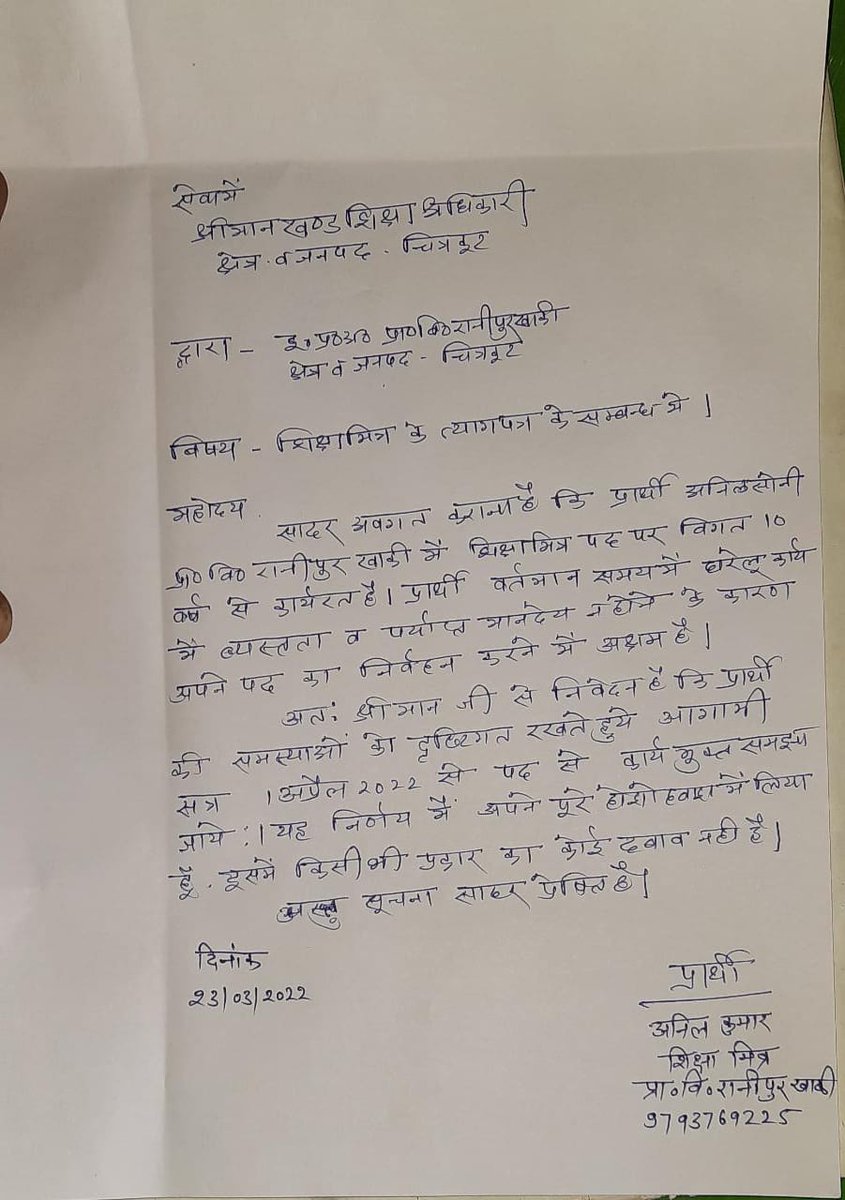 सेवामें
श्रीमान खण्ड शिक्षा अधिकारी
क्षेत्र व जनपद - चित्रकूट
द्वारा - इ० प्र०अ० प्रा०वि० रानीपुर खाकी
क्षेत्र व जनपद - चित्रकूट
विषय - शिक्षामित्र के त्यागपत्र के सम्बन्ध मे |
महोदय
सादर अवगत कराना है कि प्रार्थी अनिल सोनी
प्रा० वि० रानीपुर खाकी में शिक्षामित्र पद पर विगत 10
वर्ष से कार्यरत है। प्रार्थी वर्तमान समय में घरेलू कार्य
में व्यस्तता व पर्याप्त मानदेय न होने के कारण
अपने पद का निर्वहन करने में अक्षम है |
अतः श्रीमान जी से निवेदन है कि प्रार्थी
की समस्याओं को दृष्टिगत रखते हुये आगामी
सत्र 1 अप्रैल 2022 से पद से कार्य मुक्त समझा
जाये :| यह निर्णय में अपने पूरे होशो हवाश में लिया
हूँ . इसमें किसी भी प्रकार का कोई दवाव नही है |
सूचना सादर प्रेषित है |
दिनांक
23/03/2022
प्रार्थी
अनिल कुमार
शिक्षा मित्र
प्रा० वि० रानीपुर खाकी
9793769225